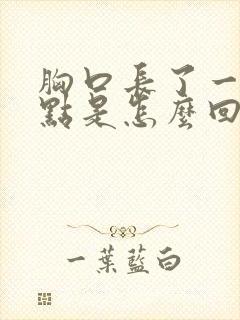 胸口長了一
點是怎麼回
一葉藍白